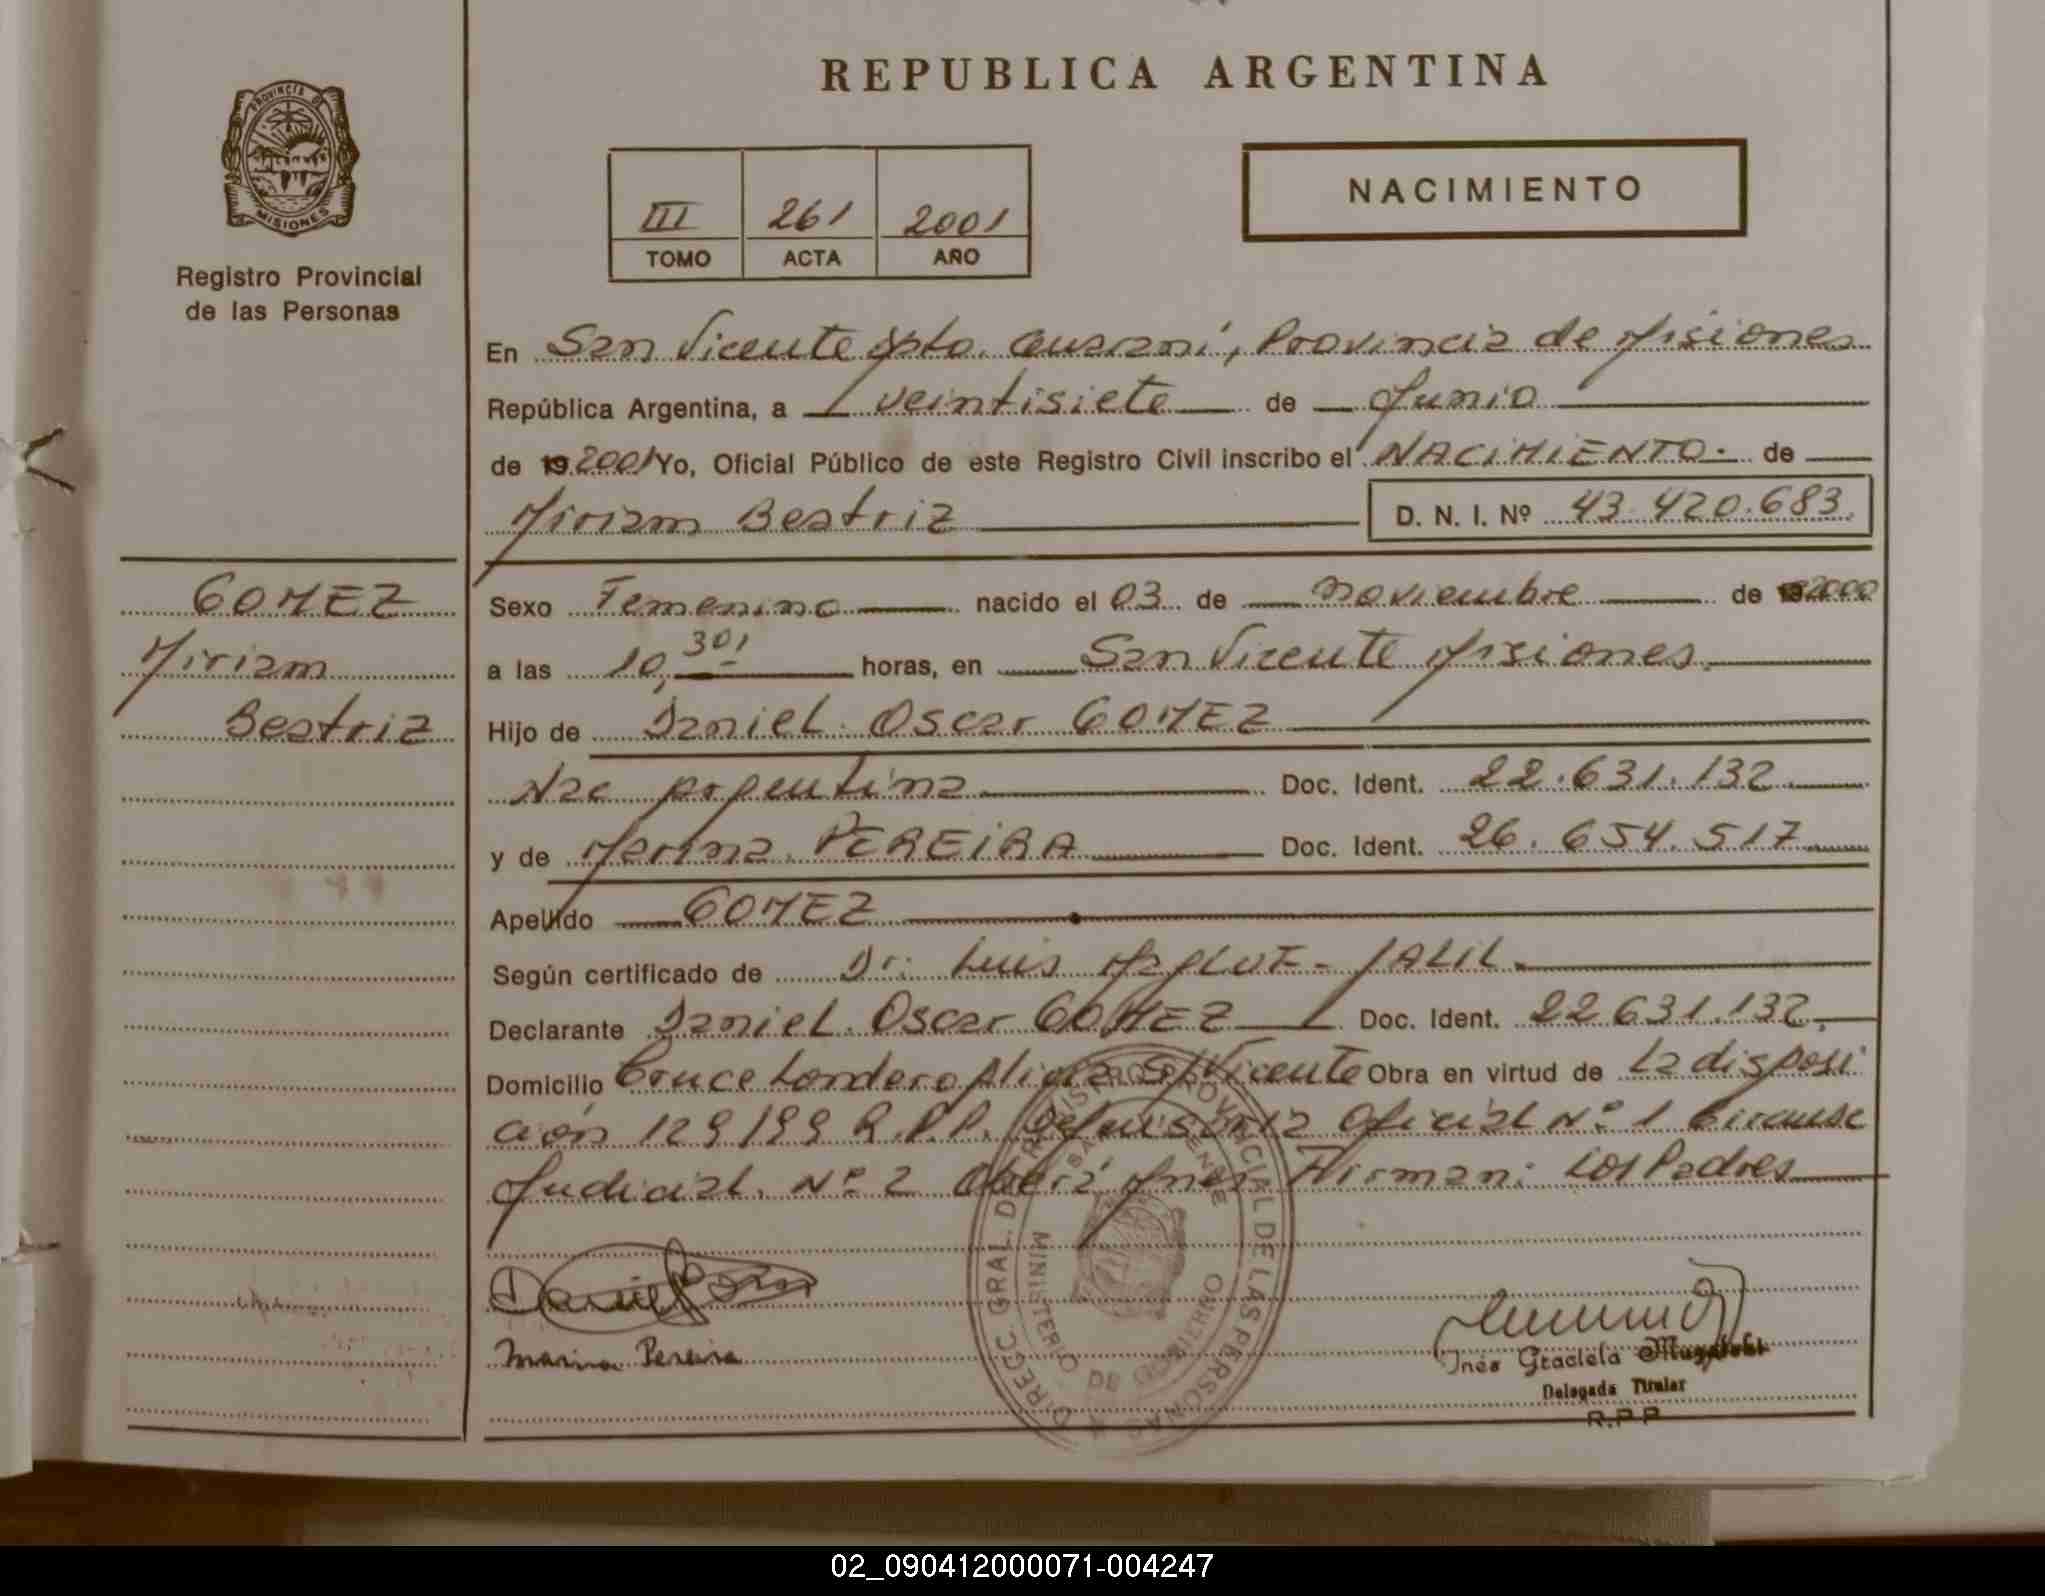 REPUBLICA ARGENTINA
PROVINCIA DE
MISIONES
Registro Provincial
de las Personas
III 261 2001
TOMO ACTA AÑO
NACIMIENTO
En San Vicente Dpto. Guaraní, Provincia de Misiones
República Argentina, a veintisiete de Junio
de 19 2001 Yo, Oficial Público de este Registro Civil inscribo el NACIMIENTO. de
Miriam Beatriz D. N. I. Nº 43.420.683.
GOMEZ
Miriam
Beatriz
Sexo Femenino nacido el 03 de noviembre de 19 2000
a las 10,30' horas, en San Vicente Misiones.
Hijo de Daniel Oscar GOMEZ
Nac Argentina Doc. Ident. 22.631.132.
y de Marina PEREIRA Doc. Ident. 26.654.517
Apellido GOMEZ
Según certificado de Dr. Luis JALIL.
Declarante Daniel Oscar GOMEZ Doc. Ident. 22.631.132.
Domicilio Cruce Londero S/Vicente Obra en virtud de La disposi
ción 129/99 R.P.P. Defensoría Oficial Nº 1 Circunsc
Judicial. Nº 2 Oberá Mnes Firman: Los Padres
Marina Pereira
DIRECC. GRAL. DEL REGISTRO PROVINCIAL DE LAS PERSONAS
MINISTERIO DE GOBIERNO
Inés Graciela
Delegada Titular
R.P.P
02_090412000071-004247